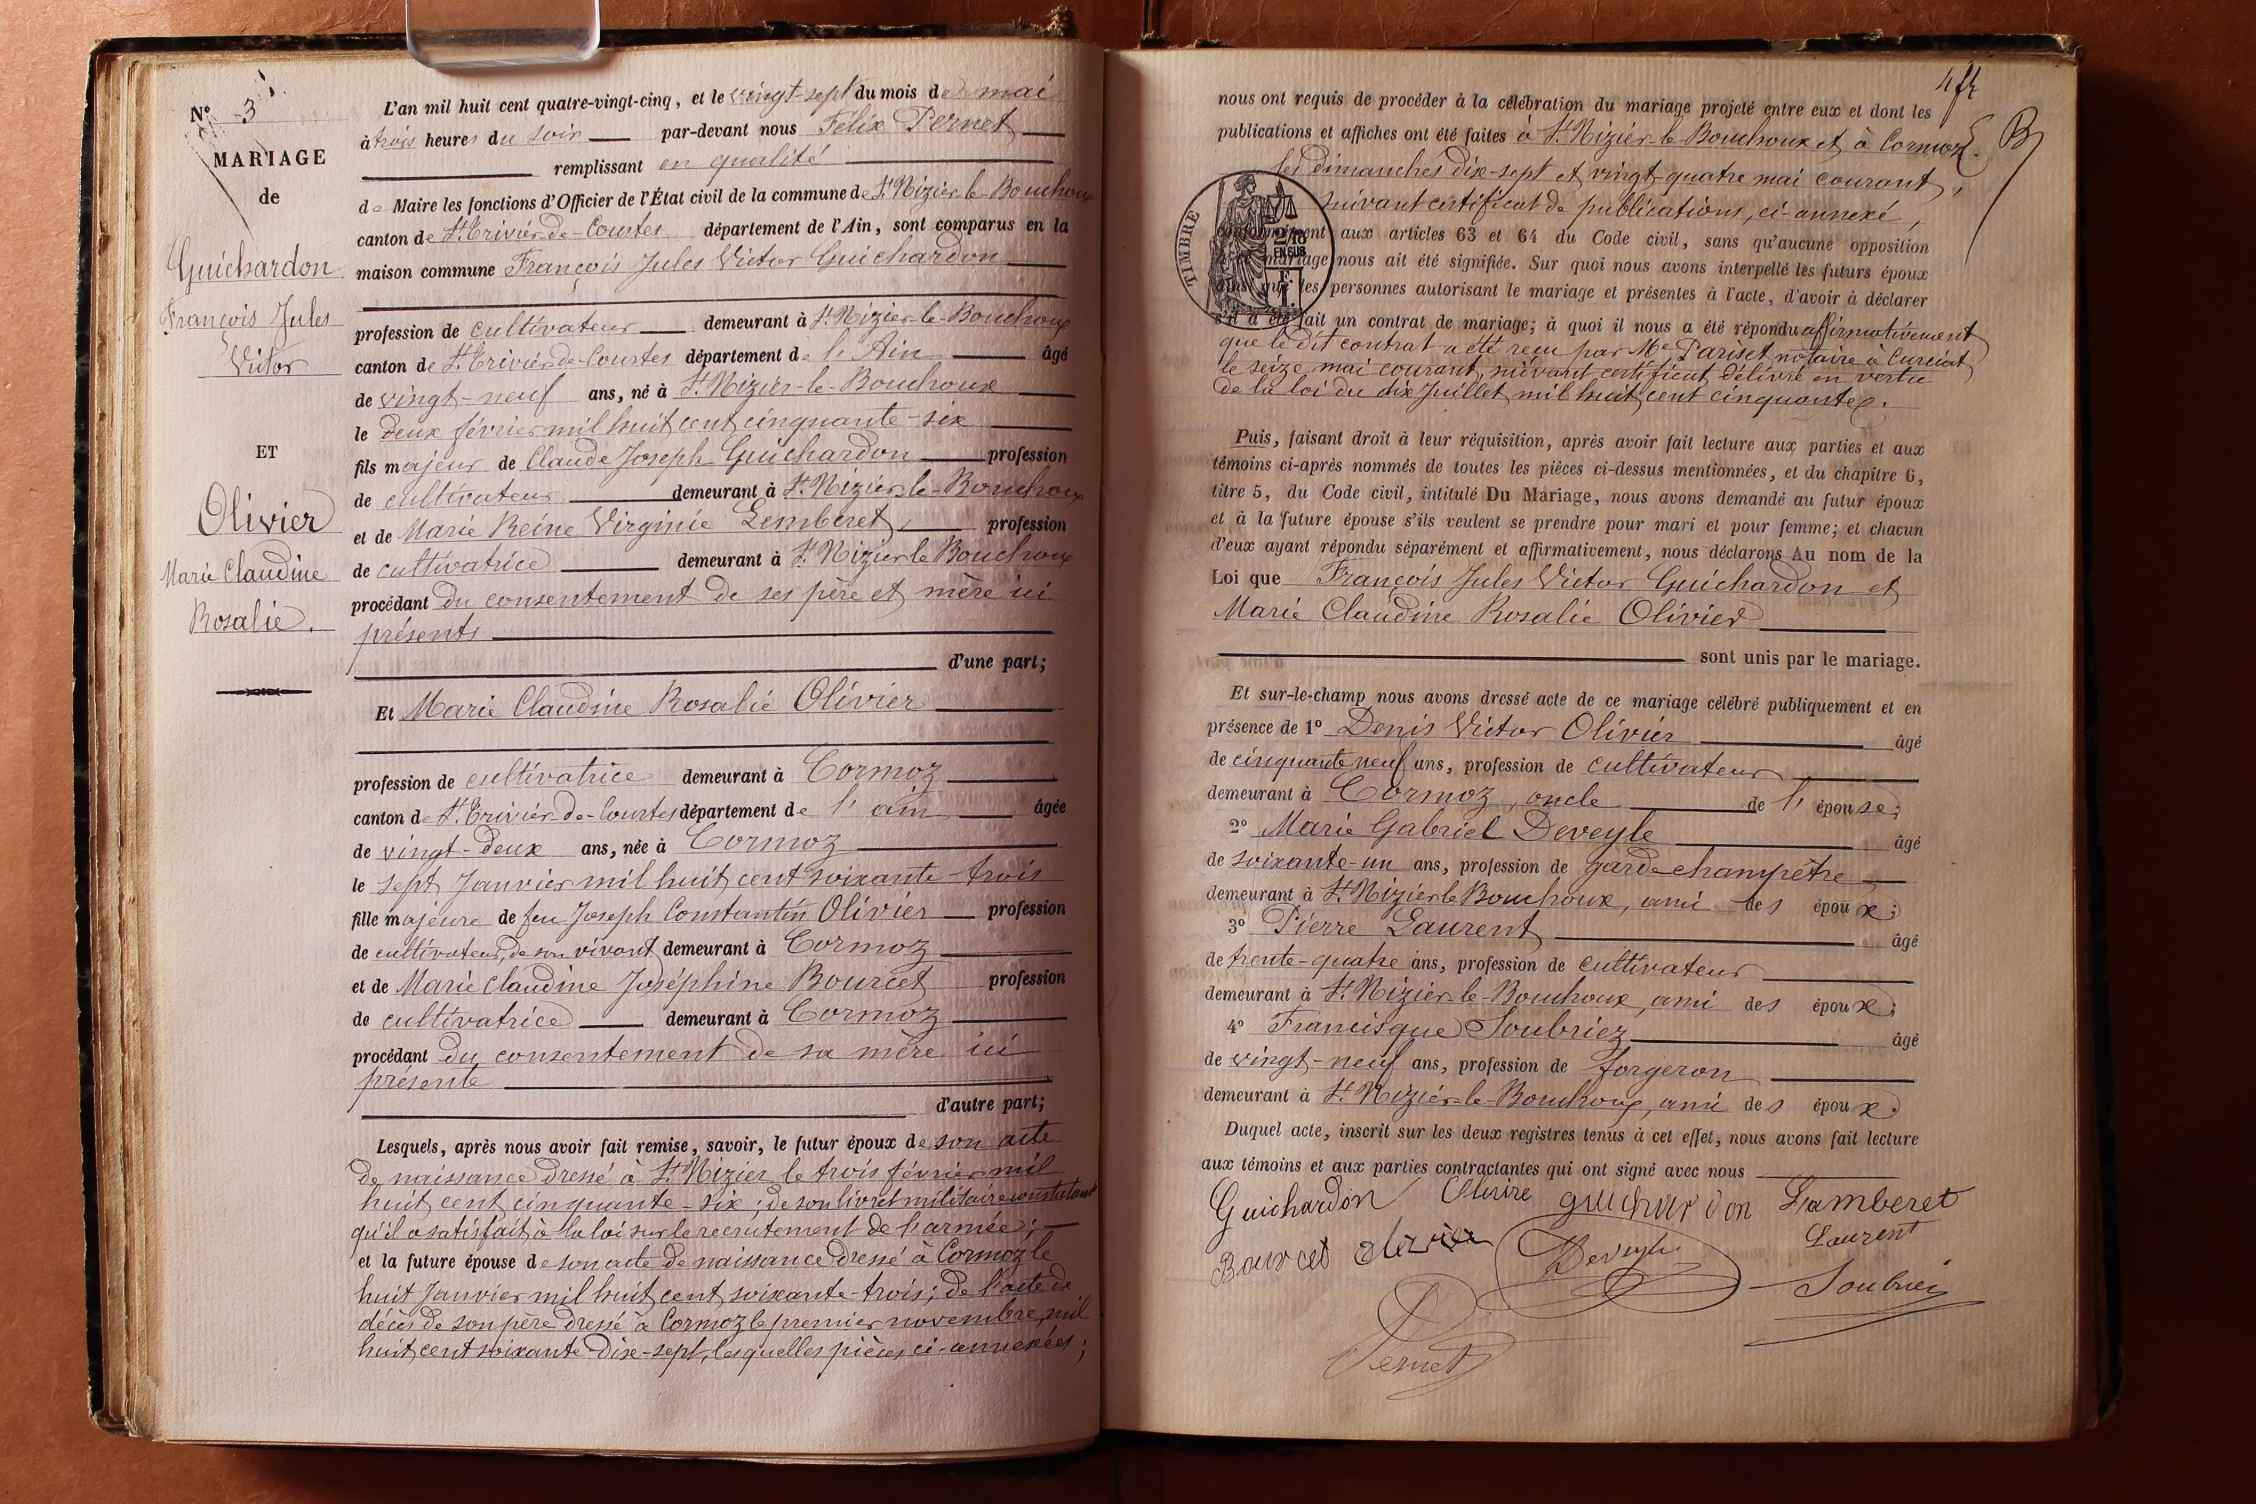 N° 3
MARIAGE
de
Guichardon
François Jules
Victor
ET
Olivier
Marie Claudine
Rosalie.
L'an mil huit cent quatre-vingt-cinq, et le vingt-sept du mois de mai
à trois heures du soir par-devant nous Félix Pernet
remplissant en qualité
de Maire les fonctions d'Officier de l'État civil de la commune de St Nizier-le-Bouchoux
canton de St Trivier-de-Courtes département de l'Ain, sont comparus en la
maison commune François Jules Victor Guichardon
profession de cultivateur demeurant à St Nizier-le-Bouchoux
canton de St Trivier-de-Courtes département de l'Ain âgé
de vingt-neuf ans, né à St Nizier-le-Bouchoux
le deux février mil huit cent cinquante-six
fils majeur de Claude Joseph Guichardon profession
de cultivateur demeurant à St Nizier-le-Bouchoux
et de Marie Reine Virginie Lemberet, profession
de cultivatrice demeurant à St Nizier le Bouchoux
procédant du consentement de ses père et mère ici
présents
d'une part;
Et Marie Claudine Rosalie Olivier
profession de cultivatrice demeurant à Cormoz
canton de St Trivier-de-Courtes département de l'ain âgée
de vingt-deux ans, née à Cormoz
le sept Janvier mil huit cent soixante-trois
fille majeure de feu Joseph Constantin Olivier profession
de cultivateur, de son vivant demeurant à Cormoz
et de Marie Claudine Joséphine Bourcet profession
de cultivatrice demeurant à Cormoz
procédant du consentement de sa mère ici
présente
d'autre part;
Lesquels, après nous avoir fait remise, savoir, le futur époux de son acte
de naissance dressé à St Nizier le trois février mil
huit cent cinquante-six; de son livret militaire constatant
qu'il a satisfait à la loi sur le recrutement de l'armée;
et la future épouse de son acte de naissance dressé à Cormoz le
huit Janvier mil huit cent soixante-trois; de l'acte de
décès de son père dressé à Cormoz le premier novembre mil
huit cent soixante dix-sept, lesquelles pièces ci-annexées;
nous ont requis de procéder à la célébration du mariage projeté entre eux et dont les
publications et affiches ont été faites à St Nizier-le-Bouchoux et à Cormoz
les dimanches dix-sept et vingt-quatre mai courant,
suivant certificat de publications, ci-annexé,
conformément aux articles 63 et 64 du Code civil, sans qu'aucune opposition
mariage nous ait été signifiée. Sur quoi nous avons interpellé les futurs époux
ainsi que les personnes autorisant le mariage et présentes à l'acte, d'avoir à déclarer
s'il a été fait un contrat de mariage; à quoi il nous a été répondu affirmativement
que le dit contrat a été reçu par Me Pariset notaire à Curciat
le seize mai courant, suivant certificat délivré en vertu
de la loi du dix Juillet mil huit cent cinquante.
TIMBRE
EN SUS
Puis, faisant droit à leur réquisition, après avoir fait lecture aux parties et aux
témoins ci-après nommés de toutes les pièces ci-dessus mentionnées, et du chapitre 6,
titre 5, du Code civil, intitulé Du Mariage, nous avons demandé au futur époux
et à la future épouse s'ils veulent se prendre pour mari et pour femme; et chacun
d'eux ayant répondu séparément et affirmativement, nous déclarons Au nom de la
Loi que François Jules Victor Guichardon et
Marie Claudine Rosalie Olivier
sont unis par le mariage.
Et sur-le-champ nous avons dressé acte de ce mariage célébré publiquement et en
présence de 1° Denis Victor Olivier âgé
de cinquante neuf ans, profession de cultivateur
demeurant à Cormoz, oncle de l'épouse;
2° Marie Gabriel Deveyle âgé
de soixante-un ans, profession de garde-champêtre
demeurant à St Nizier le Bouchoux, ami des époux;
3° Pierre Laurent âgé
de trente-quatre ans, profession de cultivateur
demeurant à St Nizier-le-Bouchoux, ami des époux;
4° Francisque Soubriez âgé
de vingt-neuf ans, profession de forgeron
demeurant à St Nizier-le-Bouchoux, ami des époux.
Duquel acte, inscrit sur les deux registres tenus à cet effet, nous avons fait lecture
aux témoins et aux parties contractantes qui ont signé avec nous
Guichardon guichardon Lamberet
Laurent
Bourcet olivier Deveyle
Soubriez
Pernet